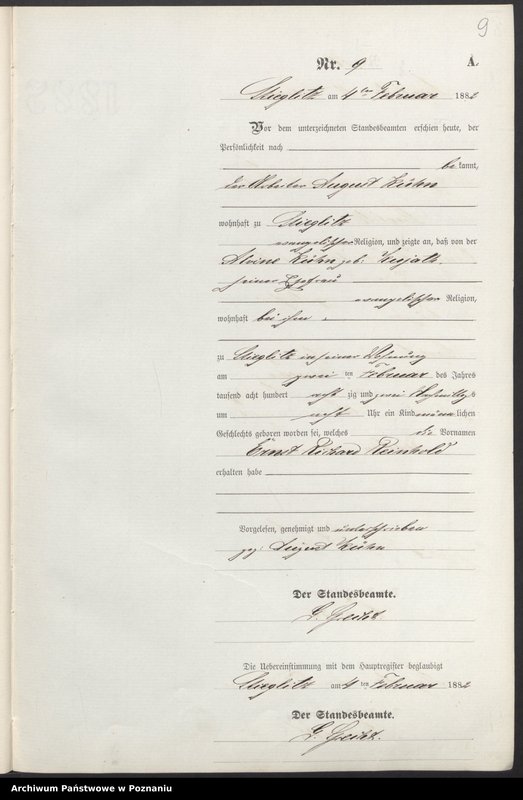 9
Nr. 9 A.
Stieglitz am 4ten Februar 1882
Vor dem unterzeichneten Standesbeamten erschien heute, der
Persönlichkeit nach
be kannt,
der Arbeiter August Kühn
wohnhaft zu Stieglitz
evangelischer Religion, und zeigte an, daß von der
Alvine Kühn geb.
seiner Ehefrau
evangelischer Religion,
wohnhaft bei ihm
zu Stieglitz in seiner Wohnung
am zwei ten Februar des Jahres
tausend acht hundert acht zig und zwei Vormittags
um acht Uhr ein Kind männ lichen
Geschlechts geboren worden sei, welches die Vornamen
Ernst Richard Reinhold
erhalten habe
Vorgelesen, genehmigt und unterschrieben
gez. August Kühn
Der Standesbeamte.
Die Uebereinstimmung mit dem Hauptregister beglaubigt
Stieglitz am 4 ten Februar 1882
Der Standesbeamte.
Archiwum Państwowe w Poznaniu